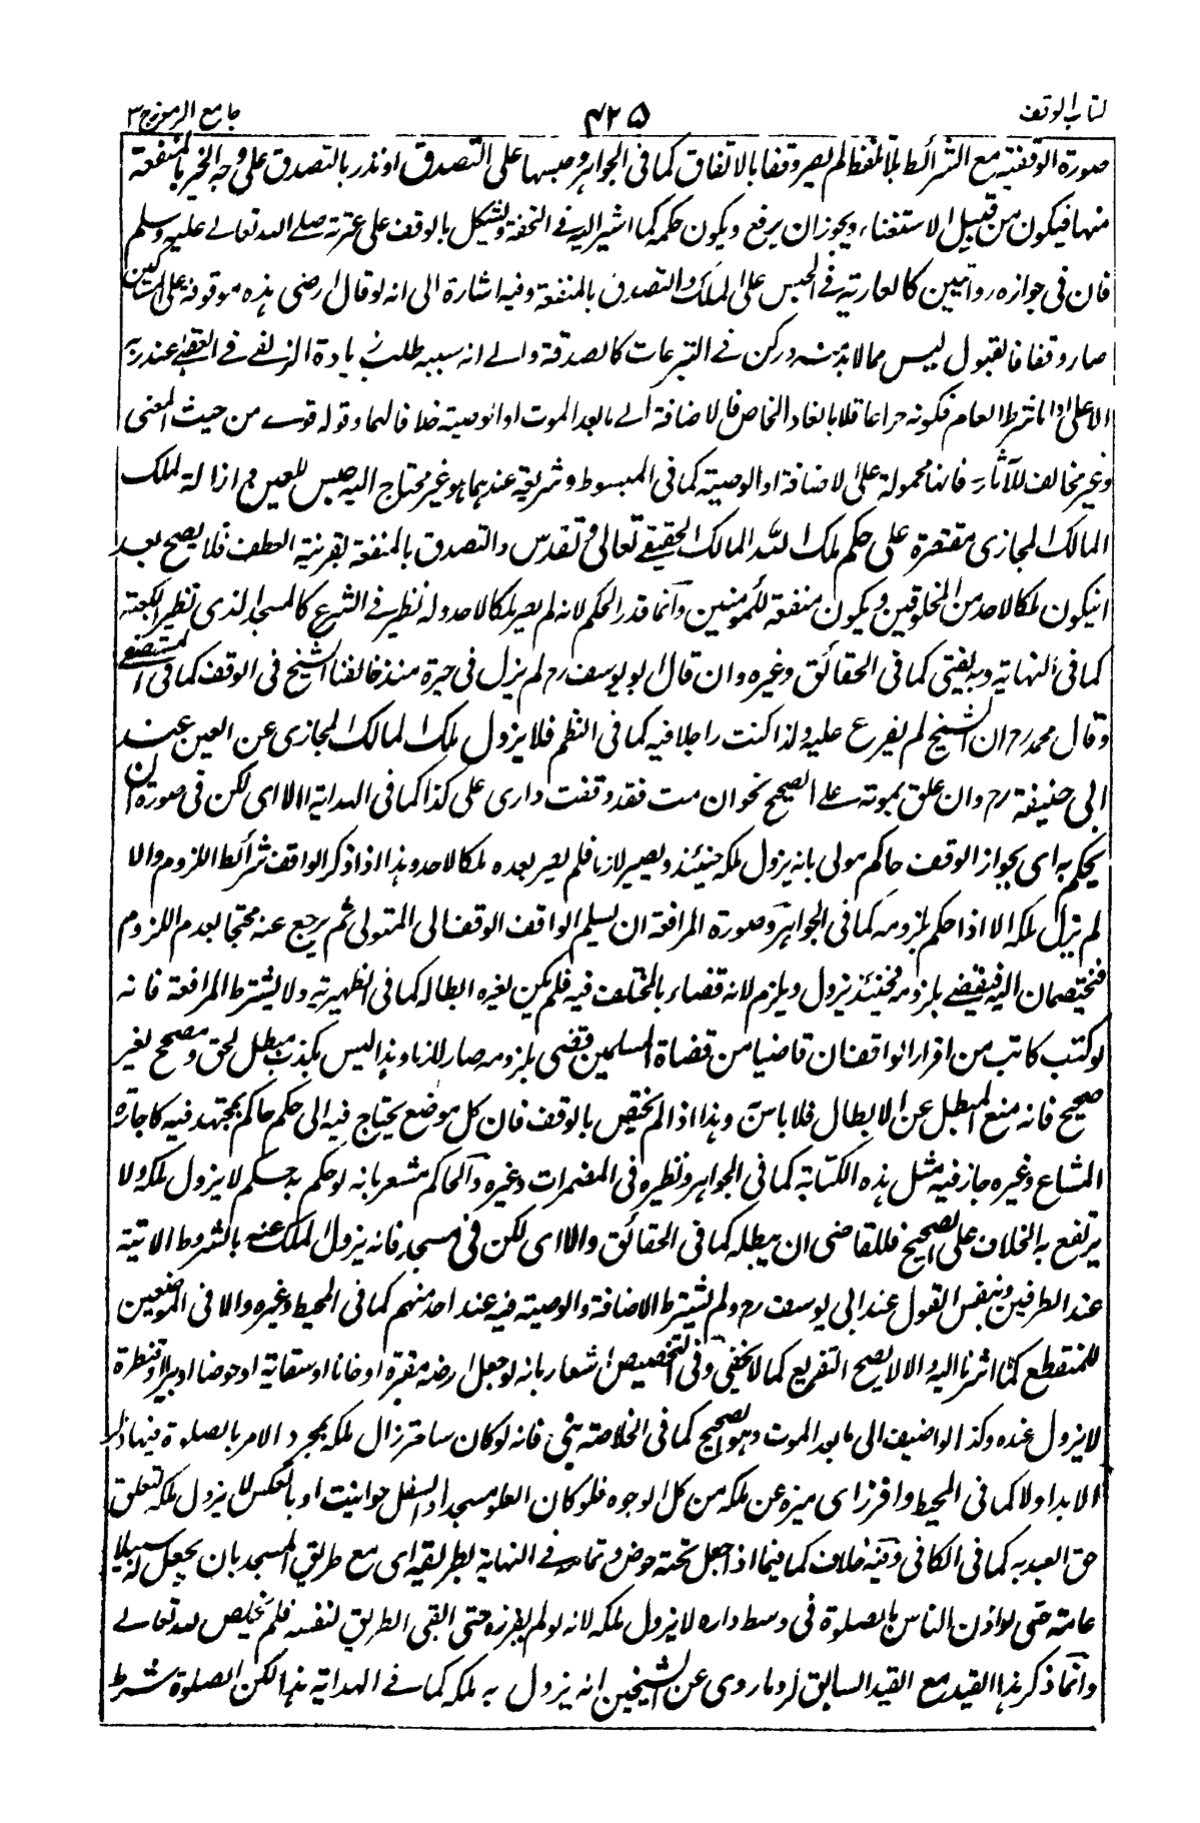 كتاب الوقف ۴۲۵ جامع الرموز ج٣
صورة الوقفية مع الشرائط بلا تلفظ لم يصر وقفا بالاتفاق كما في الجواهر وحبسها على التصدق او نذر بالتصدق على وجه الخير بالمنفعة
منها فيكون من قبيل الاستغناء ويجوز ان يرفع ويكون حكمه كما اشير اليه في التحفة ويشكل بالوقف على عترته صلى الله تعالى عليه وسلم
فان في جوازه روايتين كالعارية في الحبس على الملك والتصدق بالمنفعة وفيه اشارة الى انه لو قال ارضى هذه موقوفة على المساكين
صار وقفا فالقبول ليس مما لا بد منه وركن في التبرعات كالصدقة والى انه سببه طلب زيادة الزلفى في العقبى عند ربه
الاعلى واما شرطه العام فكونه حرا عاقلا بالغا والخاص فالاضافة الى ما بعد الموت او الوصية خلافا لهما وقوله قوى من حيث المعنى
وغير مخالف للآثار فانها محمولة على الاضافة او الوصية كما في المبسوط وشريعة عندهما هو غير محتاج اليه حبس للعين في ازالة لملك
المالك المجازى مقتصرة على حكم ملك الله المالك الحقيقي تعالى وتقدس والتصدق بالمنفعة بقرينة العطف فلا يصح بعد
ان يكون ملكا لاحد من المخلوقين ويكون منفعة للمؤمنين وانما قدر الحكم لانه لم يصر ملكا لاحد وله نظير في الشرع كالمسجد الذى نظير الكعبة
كما في النهاية وبه يفتى كما في الحقائق وغيره وان قال ابو يوسف رح لم يزل في حيرة منذ خالفنا الشيخ في الوقف كما في المستصفى
وقال محمد رح ان الشيخ لم يفرع عليه ولذا كنت راجلا فيه كما في النظم فلا يزول ملك المالك المجازى عن العين عند
ابى حنيفة رح وان علق بموته على الصحيح نحو ان مت فقد وقفت دارى على كذا كما في الهداية الا اى لكن في صورة ان
يحكم به اى بجواز الوقف حاكم مولى بانه يزول ملكه حينئذ ويصير لازما فلم يصر بعده ملكا لاحد وهذا اذا ذكر الواقف شرائط اللزوم والا
لم يزل ملكه الا اذا حكم بلزومه كما في الجواهر وصورة المرافعة ان يسلم الواقف الوقف الى المتولى ثم يرجع عنه محتجا بعدم اللزوم
فيختصمان اليه فيقضى بلزومه فحينئذ يزول ويلزم لانه قضاء بالمختلف فيه فلم يكن لغيره ابطاله كما في الظهيرية ولا يشترط المرافعة فانه
لو كتب كاتب من اقرار الواقف ان قاضيا من قضاة المسلمين قضى بلزومه صار لازما وهذا ليس بكذب مبطل لحق ومصحح لغير
صحيح فانه منع المبطل عن الابطال فلا باس به وهذا اذا لم يختص بالوقف فان كل موضع يحتاج فيه الى حكم حاكم بمجتهد فيه كاجارة
المشاع وغيره جاز فيه مثل هذه الكتابة كما في الجواهر ونظيره في المضمرات وغيره والحاكم مشعر بانه لو حكم به حكم لا يزول ملكه ولا
يرتفع به الخلاف على الصحيح فللقاضى ان يبطله كما في الحقائق والا اى لكن في مسجد فانه يزول الملك عنه بالشروط الآتية
عند الطرفين وبنفس القول عند ابى يوسف رح ولم يشترط الاضافة والوصية فيه عند احد منهم كما في المحيط وغيره والا في الموضعين
للمنقطع كما اشرنا اليه والا لا يصح التفريع كما لا يخفى وفي التخصيص اشعار بانه لو جعل ارضه مقبرة او خانا او سقاية او حوضا او بيرا او قنطرة
لا يزول عنده وكذا لو اضيف الى ما بعد الموت وهو الصحيح كما في الخلاصة بنى فانه لو كان ساحة زال ملكه بمجرد الامر بالصلوة فيها ذكر
الابد اولا كما في المحيط وافرز اى ميزه عن ملكه من كل الوجوه فلو كان العلو مسجدا والسفل حوانيت او بالعكس لا يزول ملكه لتعلق
حق العبد به كما في الكافى وفيه خلاف كما فيما اذا جعل تحته حوض وتمامه في النهاية بطريقه اى مع طريق المسجد بان يجعل له سبيلا
عامة حتى لو اذن الناس بالصلوة في وسط داره لا يزول ملكه لانه لو لم يفرزه حتى ابقى الطريق لنفسه فلم يخلص لله تعالى
وانما ذكر هذا القيد مع القيد السابق لرد ما روى عن الشيخين انه يزول به ملكه كما في الهداية هذا لكن الصلوة شرط